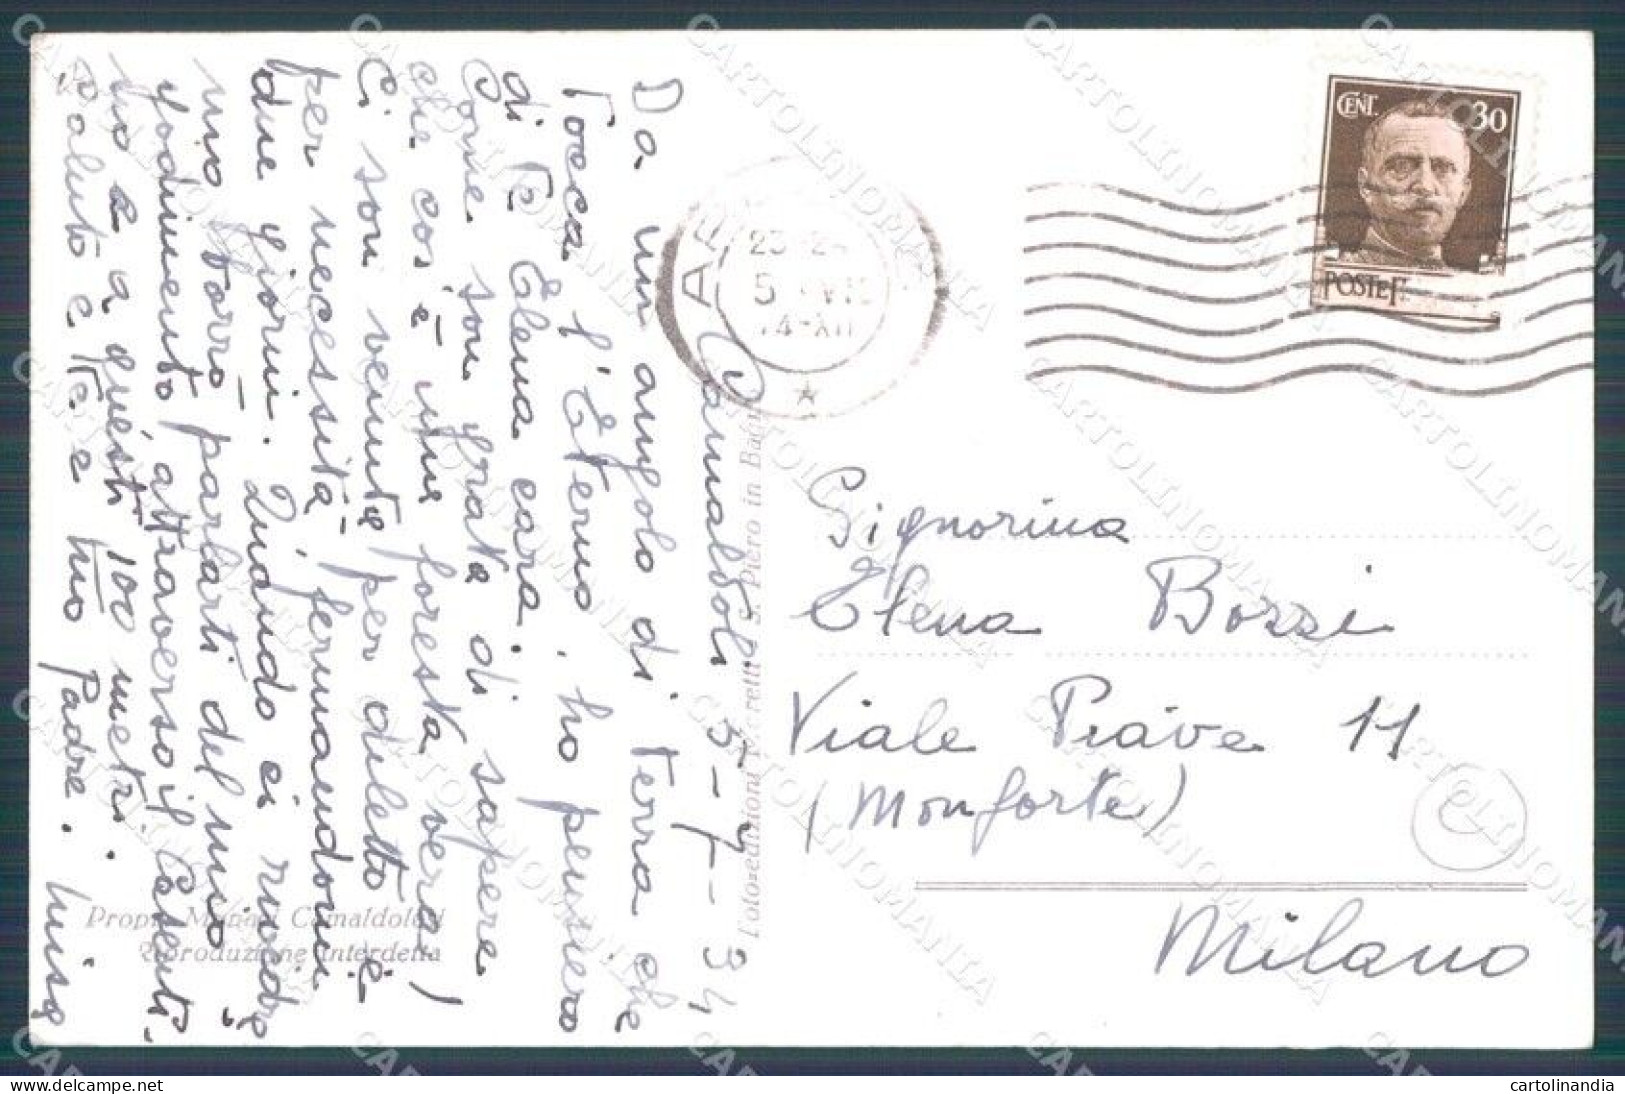 Camaldoli 5-7-34
Da un angolo di terra che
tocca l'Eterno, ho pensiero
di te Elena cara.
Come son grata di sapere
che cos'è una foresta vera!
Ci son venuta per diletto e
per necessità fermandomi
due giorni. Quando ci
mo vorrò parlarti del mio
godimento attraverso il Casenti-
no e a questi 1100 metri.
Saluto e te e tuo Padre. Luisa
Propr. Monaci Camaldolesi
Riproduzione interdetta
Foto-edizioni S. Piero in Bagno
CENT. 30
POSTE
23-24
5 VII
34-XII
Signorina
Elena Bozzi
Viale Piave 11
(Monforte)
Milano
CARTOLINOMANIA
cartolinandia